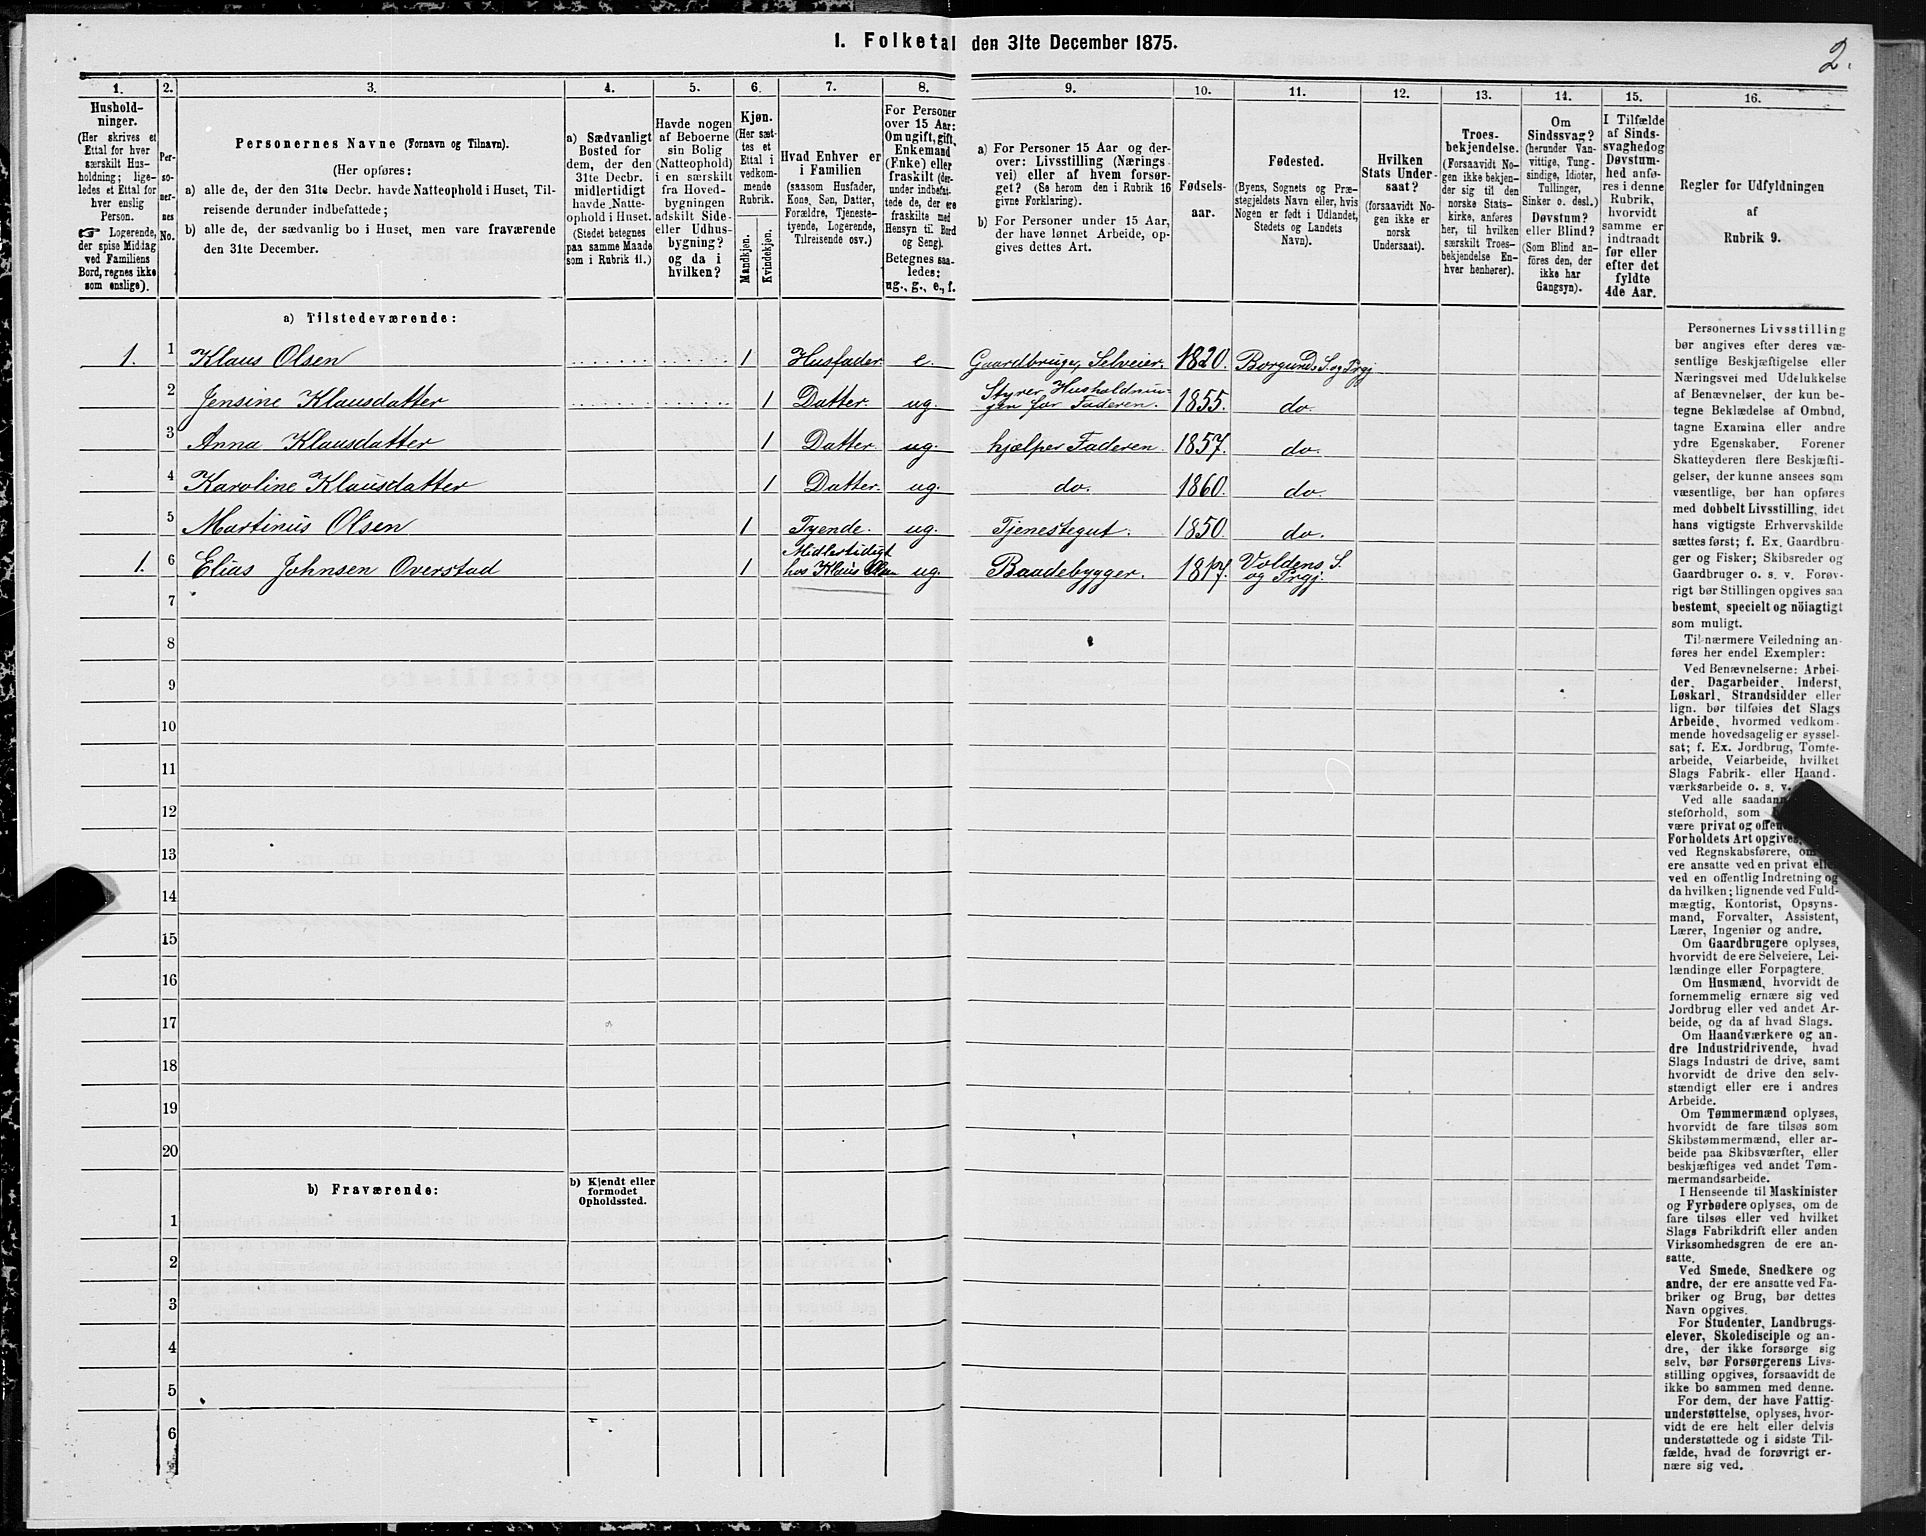 I. Folketal den 31te December 1875.
2.
1. 2. 3. 4. 5. 6. 7. 8. 9. 10. 11. 12. 13. 14. 15. 16.
Hushold-
ninger.
(Her skrives et
Ettal for hver
særskilt Hus-
holdning; lige-
ledes et Ettal for
hver enslig
Person.
☞ Logerende,
der spise Middag
ved Familiens
Bord, regnes ikke
som enslige).
Per-
so-
ner-
nes
No.
Personernes Navne (Fornavn og Tilnavn).
(Her opføres:
a) alle de, der den 31te Decbr. havde Natteophold i Huset, Til-
reisende derunder indbefattede;
b) alle de, der sædvanlig bo i Huset, men vare fraværende
den 31te December.
a) Sædvanligt
Bosted for
dem, der den
31te Decbr.
midlertidigt
havde Natte-
ophold i Huset.
(Stedet betegnes
paa samme Maade
som i Rubrik 11.)
Havde nogen
af Beboerne
sin Bolig
(Natteophold)
i en særskilt
fra Hoved-
bygningen
adskilt Side-
eller Udhus-
bygning?
og da i
hvilken?
Kjøn.
(Her sæt-
tes et
Ettal i
vedkom-
mende
Rubrik.
Mandkjøn.
Kvindekjøn.
Hvad Enhver er
i Familien
(saasom Husfader,
Kone, Søn, Datter,
Forældre, Tjeneste-
tyende, Logerende,
Tilreisende osv.)
For Personer
over 15 Aar:
Om ugift, gift,
Enkemand
(Enke) eller
fraskilt (der-
under indbefat-
tede de, der ere
fraskilte med
Hensyn til Bord
og Seng).
Betegnes saa-
ledes:
ug., g., e., f.
a) For Personer 15 Aar og der-
over: Livsstilling (Nærings
vei) eller af hvem forsør-
get? (Se herom den i Rubrik 16
givne Forklaring).
b) For Personer under 15 Aar,
der have lønnet Arbeide, op-
gives dettes Art.
Fødsels-
aar.
Fødested.
(Byens, Sognets og Præ-
stegjeldets Navn eller, hvis
Nogen er født i Udlandet,
Stedets og Landets
Navn).
Hvilken
Stats Under-
saat?
(forsaavidt No-
gen ikke er
norsk
Undersaat).
Troes-
bekjendelse.
(Forsaavidt No-
gen ikke bekjen-
der sig til den
norske Stats-
kirke, anføres
her, til hvilken
særskilt Troes-
bekjendelse En-
hver henhører).
Om
Sindssvag?
(herunder Van-
vittige, Tung-
sindige, Idioter,
Tullinger,
Sinker o. desl.)
Døvstum?
eller Blind?
(Som Blind an-
føres den, der
ikke har
Gangsyn).
I Tilfælde
af Sinds-
svaghed og
Døvstum-
hed anfø-
res i denne
Rubrik,
hvorvidt
samme er
indtraadt
før eller
efter det
fyldte
4de Aar.
Regler for Udfyldningen
af
Rubrik 9.
a) Tilstedeværende:
1. 1 Klaus Olsen 1 Husfader e. Gaardbruger, Selveier. 1820. Borgunds S. og Prgj
2 Jensine Klausdatter 1 Datter. ug. Styrer Husholdnin-
gen for Faderen. 1855. do.
3 Anna Klausdatter 1 Datter. ug. hjælper Faderen. 1857. do.
4 Karoline Klausdatter 1 Datter. ug. do. 1860. do.
5 Martinus Olsen 1 Tyende. ug. Tjenestegut. 1850. do.
1. 6 Elias Johnsen Overstad 1 Midlertidigt
hos Klaus Olsen ug. Baadebygger. 1817. Voldens S.
og Prgj.
7
8
9
10
11
12
13
14
15
16
17
18
19
20
b) Fraværende:
b) Kjendt eller
formodet
Opholdssted.
1
2
3
4
5
6
Personernes Livsstilling
bør angives efter deres væ-
sentlige Beskjæftigelse eller
Næringsvei med Udelukkelse
af Benævnelser, der kun be-
tegne Beklædelse af Ombud,
tagne Examina eller andre
ydre Egenskaber. Forener
Skatteyderen flere Beskjæfti-
gelser, der kunne ansees som
væsentlige, bør han opføres
med dobbelt Livsstilling, idet
hans vigtigste Erhvervskilde
sættes først; f. Ex. Gaardbru-
ger og Fisker; Skibsreder og
Gaardbruger o. s. v. Forøv-
rigt bør Stillingen opgives saa
bestemt, specielt og nöiagtigt
som muligt.
Til nærmere Veiledning an-
føres her endel Exempler:
Ved Benævnelserne: Arbei-
der, Dagarbeider, Inderst,
Løskarl, Strandsidder eller
lign. bør tilføies det Slags
Arbeide, hvormed vedkom-
mende hovedsagelig er syssel-
sat; f. Ex. Jordbrug, Tomte-
arbeide, Veiarbeide, hvilket
Slags Fabrik- eller Haand-
værksarbeide o. s. v.
Ved alle saadan
steforhold, som
være privat og offen
Forholdets Art opgives,
ved Regnskabsførere, om
ere ansatte ved en privat eller
ved en offentlig Indretning og
da hvilken; lignende ved Fuld-
mægtig, Kontorist, Opsyns-
mand, Forvalter, Assistent,
Lærer, Ingeniør og andre.
Om Gaardbrugere oplyses,
hvorvidt de ere Selveiere, Lei-
lændinge eller Forpagtere.
Om Husmænd, hvorvidt de
fornemmelig ernære sig ved
Jordbrug eller ved andet Ar-
beide, og da af hvad Slags.
Om Haandværkere og an-
dre Industridrivende, hvad
Slags Industri de drive, samt
hvorvidt de drive den selv-
stændigt eller ere i andres
Arbeide.
Om Tømmermænd oplyses,
hvorvidt de fare tilsøs som
Skibstømmermænd, eller ar-
beide paa Skibsværfter, eller
beskjæftiges ved andet Tøm-
mermandsarbeide.
I Henseende til Maskinister
og Fyrbødere oplyses, om de
fare tilsøs eller ved hvilket
Slags Fabrikdrift eller anden
Virksomhedsgren de ere an-
satte.
Ved Smede, Snedkere og
andre, der ere ansatte ved Fa-
briker og Brug, bør dettes
Navn opgives.
For Studenter, Landbrugs-
elever, Skoledisciple og an-
dre, der ikke forsørge sig
selv, bør Forsørgerens Livs-
stilling opgives, forsaavidt de
ikke bo sammen med denne.
For dem, der have Fattig-
understøttelse, oplyses, hvor-
vidt de ere helt eller delvis
understøttede og i sidste Til-
fælde, hvad de forøvrigt er-
nære sig ved.